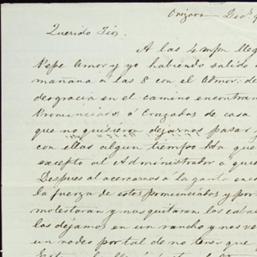 Orizava Dic.e 9
Querido Tío,
A las 4 mpm lleg
Pepe Amor y yo habiendo salido
mañana a las 8 con el Admor. de
desgracia en el camino encontram
Pronunciados ó Cruzados de casa
que no quisieron dejarnos pasar y
con ellos algun tiempo
excepto al Administrador a que
Despues al acercarnos a la garita encon
la fuerza de estos pronunciados y por
molestaron y nos quitaron los cabal
los dejamos en un rancho y nos ve
un modo portal de no tener que